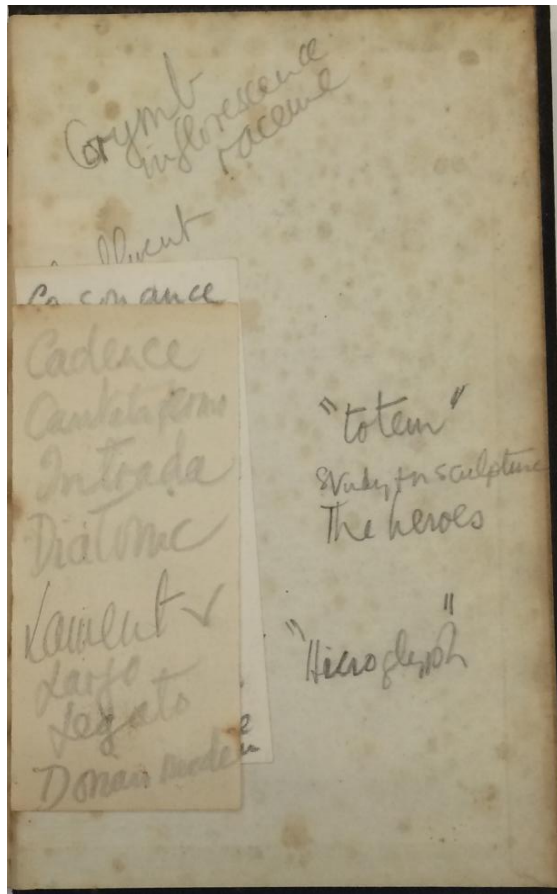 Corymb
inflorescence
raceme
Cadence
Cantata form
Intrada
Diatonic
Lament ✓
Largo
Legato
Dorian mode
"totem"
Study for sculpture
The heroes
"Hieroglyph"